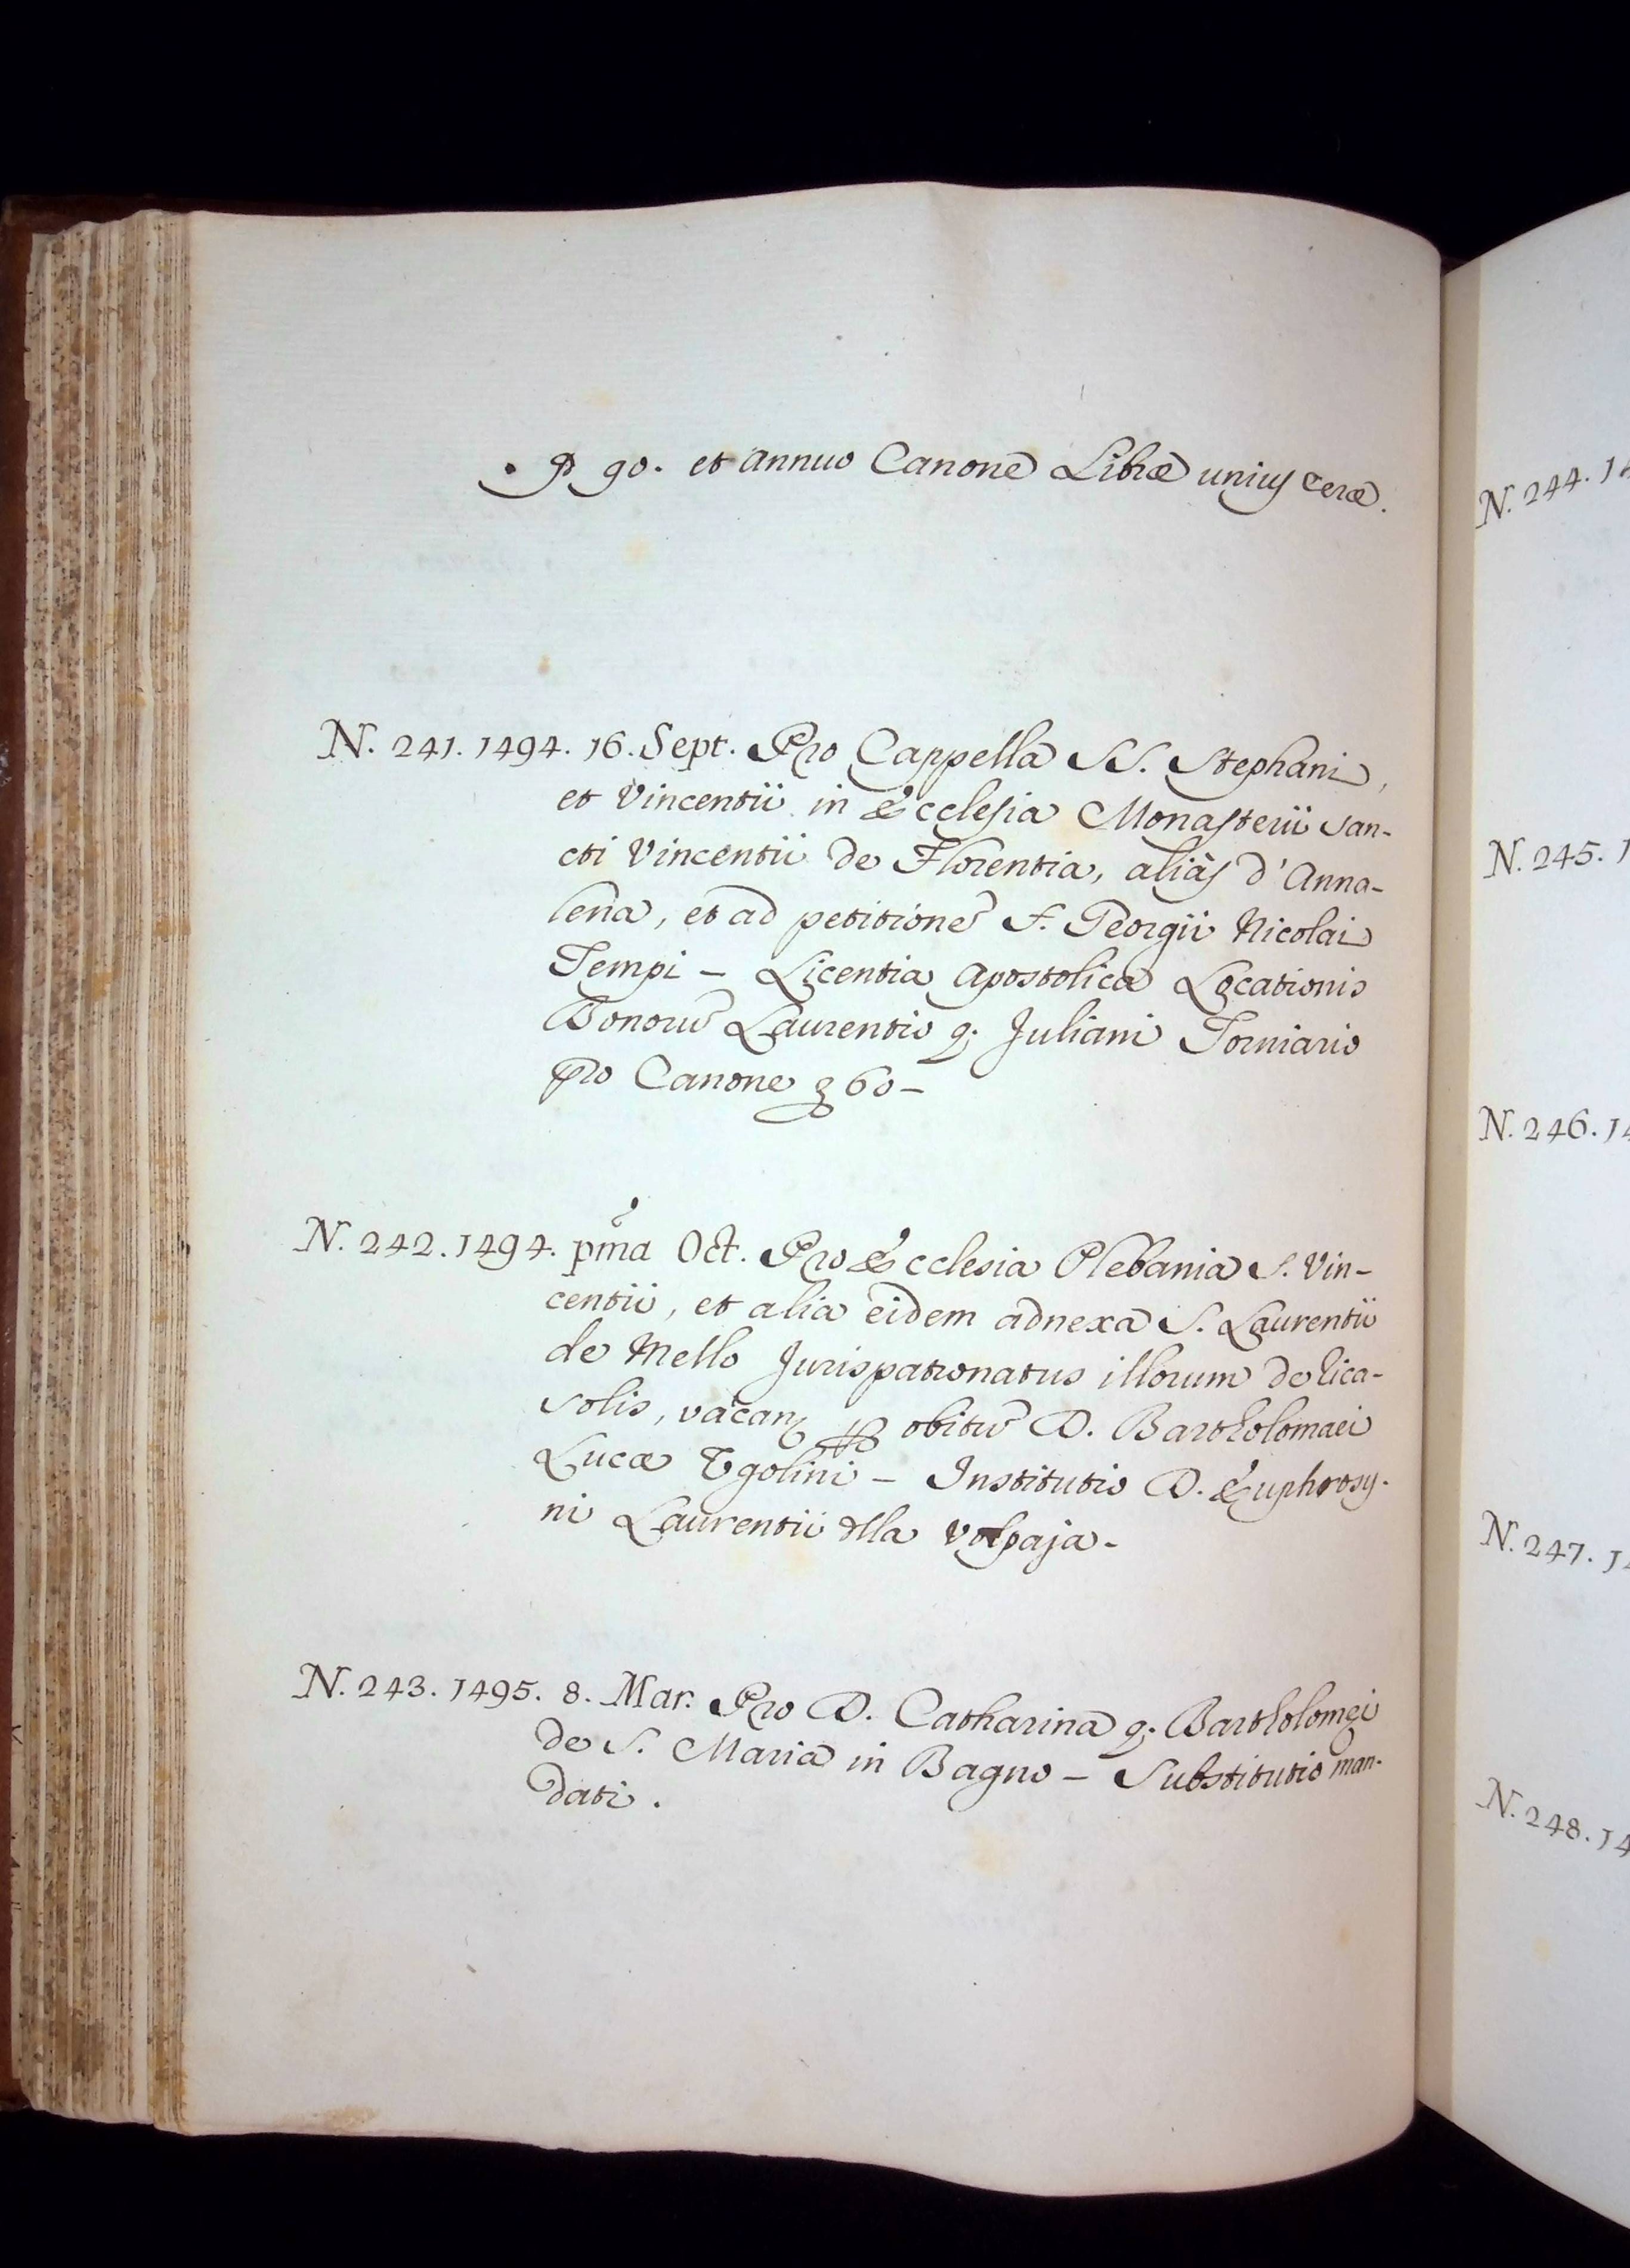 90. et annuo Canone Libræ unius ceræ.
N. 244. 14
N. 241. 1494. 16. Sept. Pro Cappella SS. Stephani,
et Vincentii in Ecclesia Monasterii San-
cti Vincentii de Florentia, aliàs d'Anna-
lena, et ad petitionē F. Georgii Nicolai
Tempi - Licentia Apostolica Locationis
Bonorū Laurentio q; Juliani Torniario
pro Canone 60-
N. 242. 1494. pma Oct. Pro Ecclesia Plebania S. Vin-
centii, et alia eidem adnexa S. Laurentii
de Mello Jurispatronatus illorum de Rica-
solis, vacan obitū D. Bartholomaei
Lucæ Ugolini - Institutio D. Euphrosy-
ni Laurentii dlla Volpaja.
N. 243. 1495. 8. Mar. Pro D. Catharina q; Bartholomęi
de S. Maria in Bagno - Substitutio man-
dati.
N. 245. 1
N. 246. 14
N. 247. 14
N. 248. 14